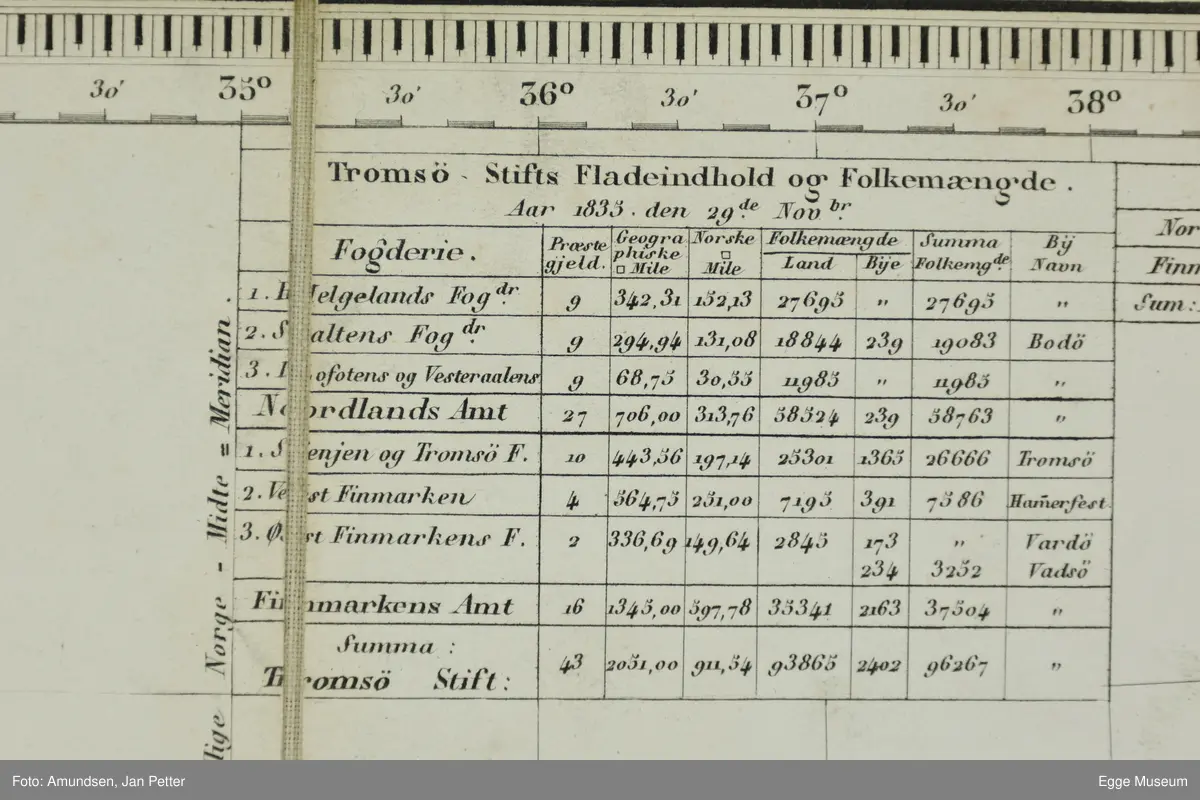 30' 35° 30' 36° 30' 37° 30' 38°
Tromsö - Stifts Fladeindhold og Folkemængde.
Aar 1835. den 29de Novbr.
Fogderie. Præste gjeld. Geogra phiske □ Mile Norske □ Mile Folkemængde Land Bÿe Summa Folkemgde. Bÿ Navn
1. Helgelands Fogdr. 9 342,31 152,13 27695 " 27695 "
2. Saltens Fogdr. 9 294,94 131,08 18844 239 19083 Bodö
3. Lofotens og Vesteraalens 9 68,75 30,55 11985 " 11985 "
Nordlands Amt 27 706,00 313,76 58524 239 58763 "
1. Senjen og Tromsö F. 10 443,56 197,14 25301 1365 26666 Tromsö
2. Vest Finmarken 4 564,75 251,00 7195 391 7586 Ham̄erfest
3. Øst Finmarkens F. 2 336,69 149,64 2845 173 " Vardö
234 3252 Vadsö
Finmarkens Amt 16 1345,00 597,78 35341 2163 37504 "
Summa:
Tromsö Stift: 43 2051,00 911,54 93865 2402 96267 "
Nor
Finn
Sum:
lige Norge - Midte = Meridian.
Foto: Amundsen, Jan Petter
Egge Museum